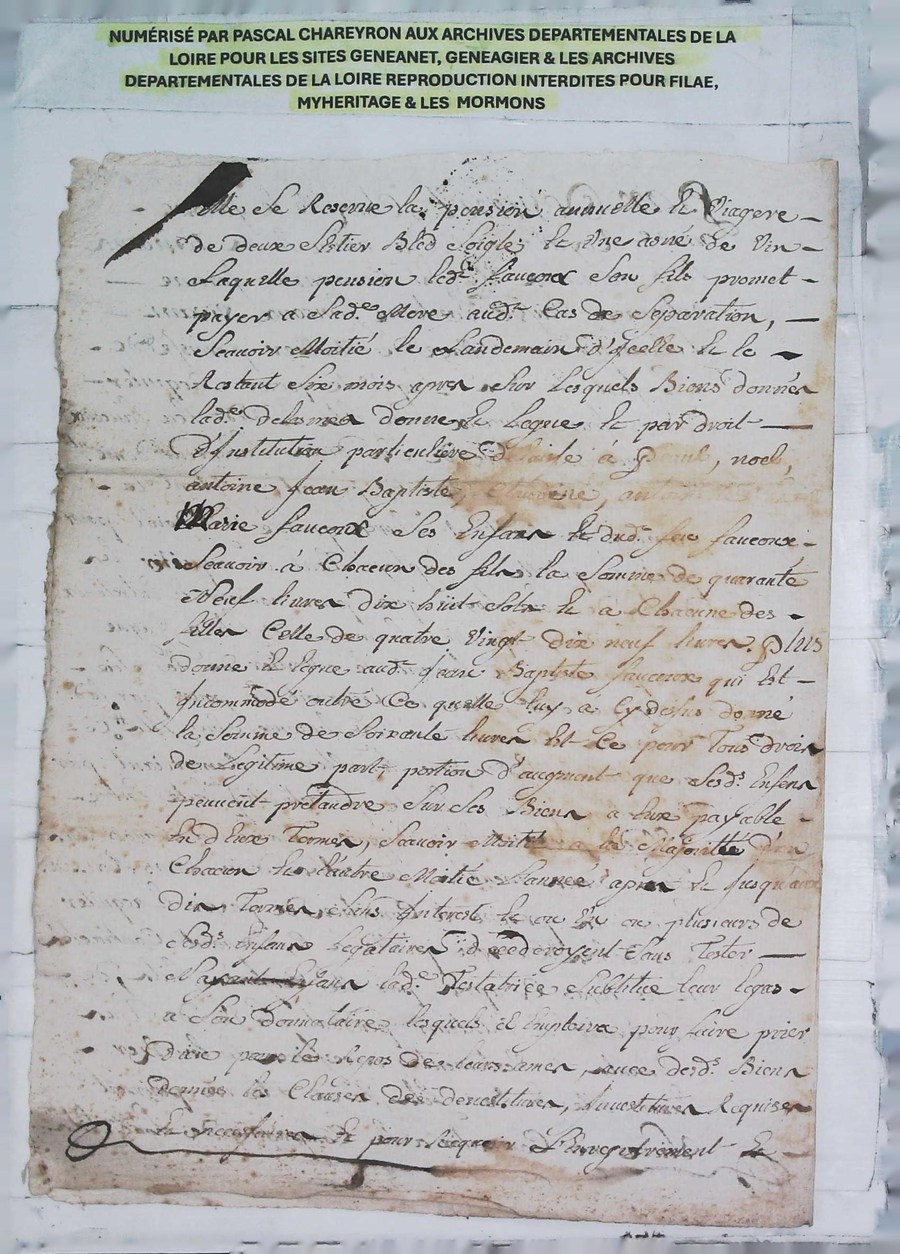 NUMÉRISÉ PAR PASCAL CHAREYRON AUX ARCHIVES DEPARTEMENTALES DE LA
LOIRE POUR LES SITES GENEANET, GENEAGIER & LES ARCHIVES
DEPARTEMENTALES DE LA LOIRE REPRODUCTION INTERDITES POUR FILAE,
MYHERITAGE & LES MORMONS
Elle se Reserve la pension annuelle et Viagere
de deux Setier Bled Soigle et Une asné de Vin
Laquelle pension led.t faucoux Son fils promet
payer a Sad.e Mere aud.t Cas de Separation,
Scauoir Moitié le Landemain d'Jcelle et le
Restant Six mois apres Sur Lesquels Biens donnés
lad.e donne et Legue et par droit
D'Jnstitution particuliere à noel,
antoine Jean Baptiste
Marie faucoux Ses Enfans et dud.t feu faucoux
Scauoir à Chacun des fils la Somme de quarante
Neuf livres dix huit Sols et a Chacune des
filles Celle de quatre Vingt dix neuf livres. Plus
donne et legue aud.t Jean Baptiste faucoux qui Est
Jncommodé outre Ce quelle luy a Cy dessus donné
la Somme de Soixante livres Est Ce pour Tous droits
de Legitime part, portion d'augment que Sesd.s Enfens
peuuent pretandre Sur Ses Biens a Eux payable
En deux Termes, Scauoir Moitié a la Majorité d'un
Chacun et l'autre Moitié L'année apres et Jusqu'aux
dits Termes Sans Jnterest et ou Un ou plusieurs de
Sesd.s Enfans Legataires decederoyent Sans Tester
Enfans lad.e Testatrice Subtitue leur legas
a Son Donnataire lesquels Employra pour faire prier
dieu pour le Repos de leurs ames, auec desd.s Biens
donnés les Clauses de deuestitures, Jnuestitures Requises
et necessaires et pour Requerir L'Enregistrement et